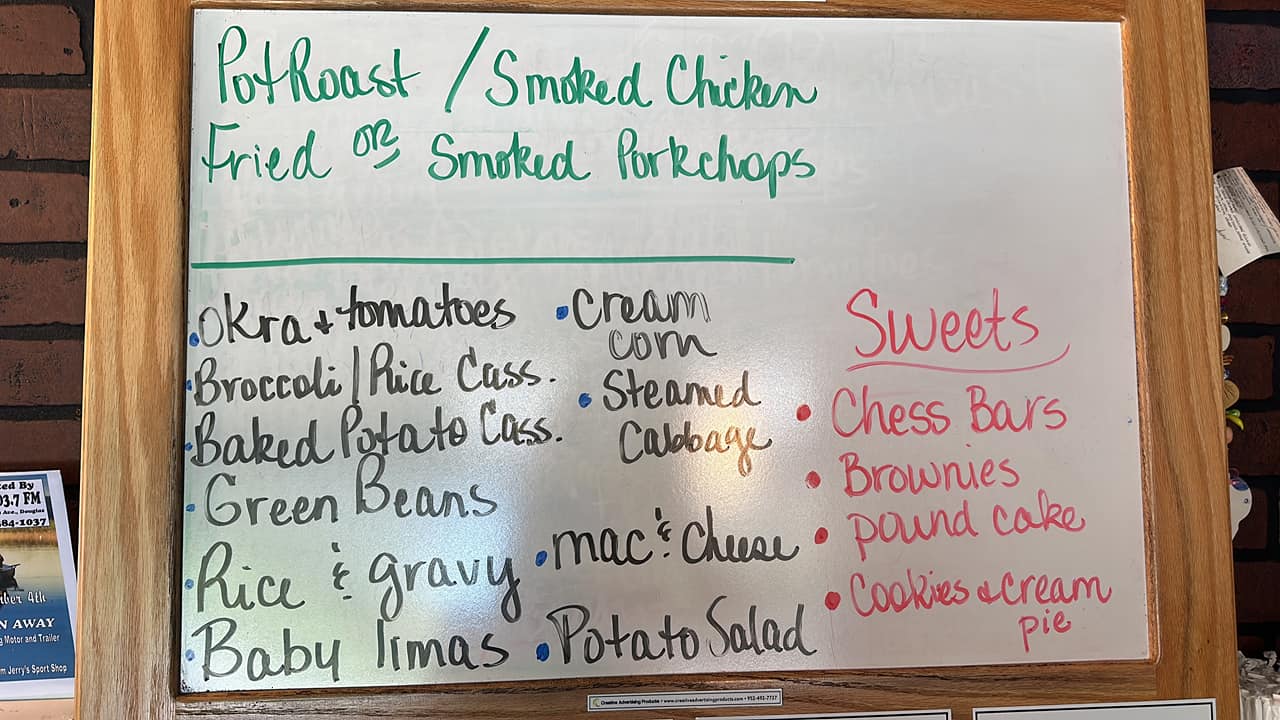 PotRoast / Smoked Chicken
Fried OR Smoked Porkchops
• Okra & tomatoes
• Broccoli / Rice Cass.
• Baked Potato Cass.
• Green Beans
• Rice & gravy
• Baby limas
• Cream
corn
• Steamed
Cabbage
• mac & cheese
• Potato Salad
Sweets
• Chess Bars
• Brownies
• pound cake
• Cookies & cream
pie
ted By
03.7 FM
Ave., Douglas
384-1037
ber 4th
N AWAY
g Motor and Trailer
m Jerry's Sport Shop
Creative Advertising Products • www.creativeadvertisingproducts.com • 952-492-7737